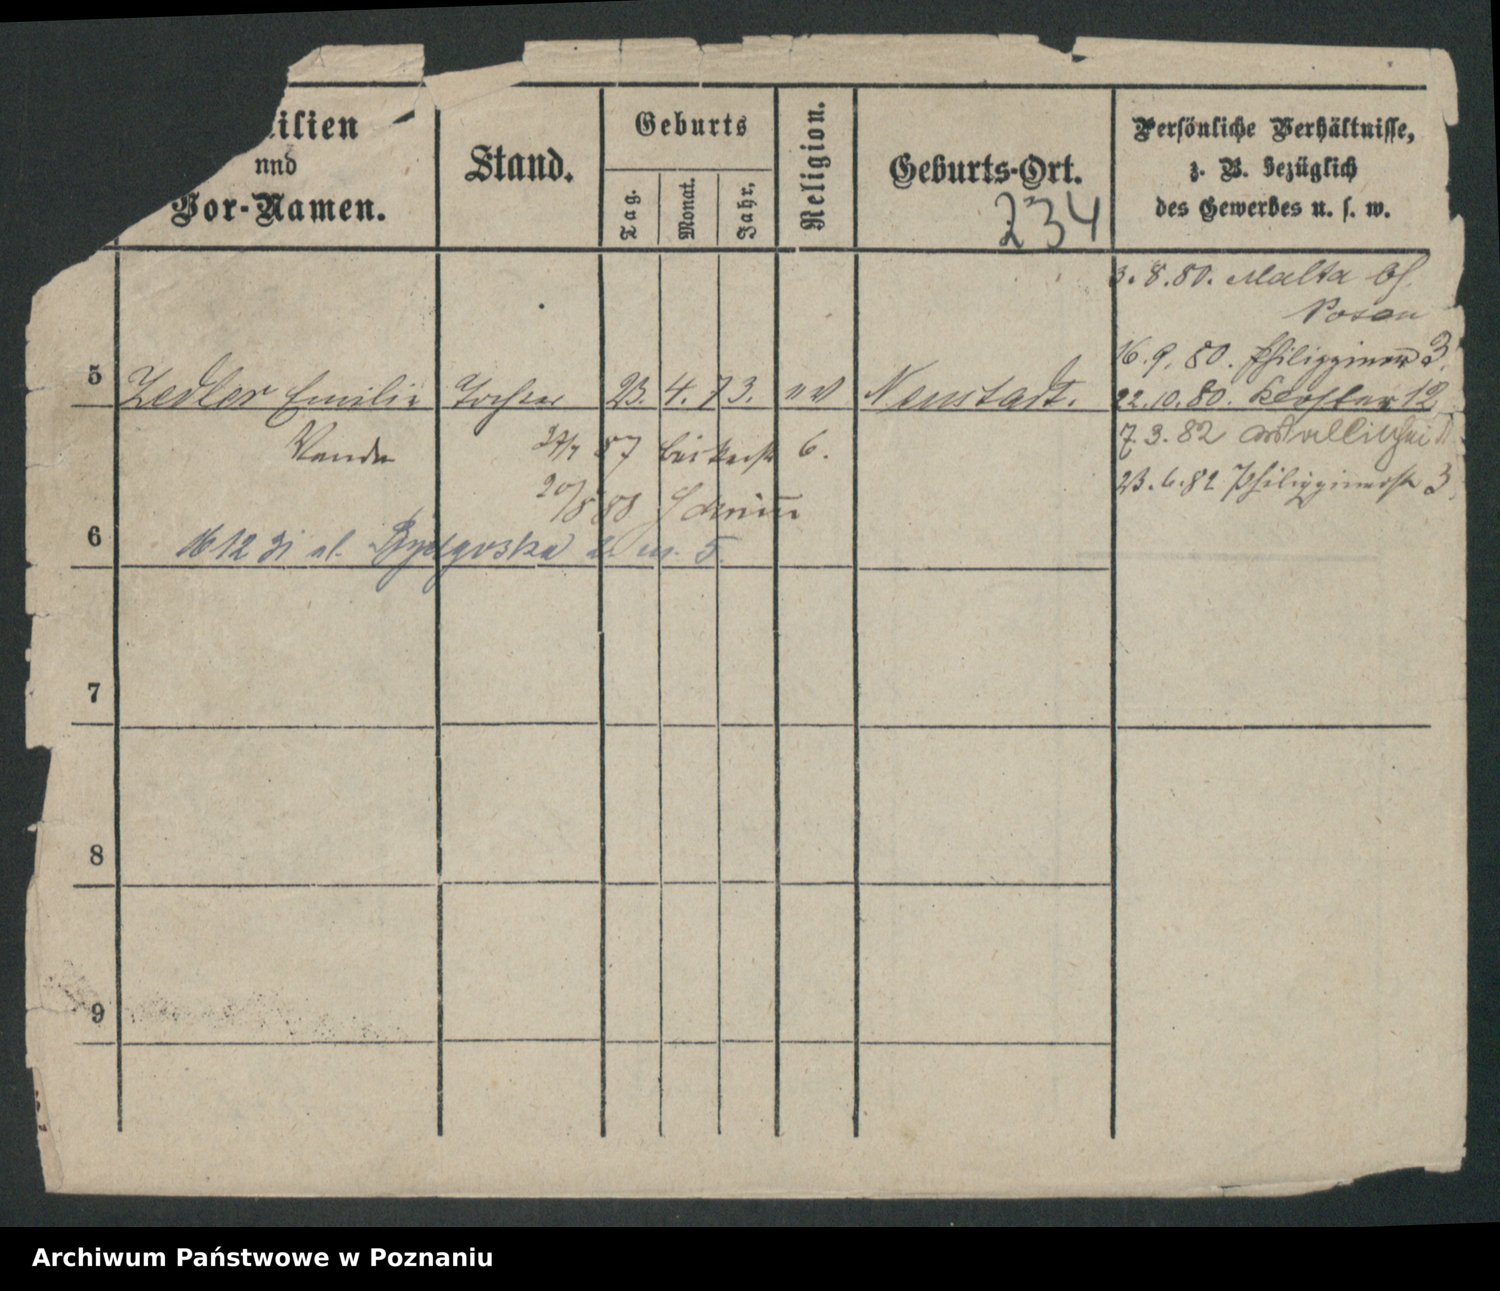 ilien
und
Vor-Namen.
Stand.
Geburts
Tag.
Monat.
Jahr.
Religion.
Geburts-Ort.
234
Persönliche Verhältnisse,
z. B. bezüglich
des Gewerbes u. s. w.
3. 8. 80. Malta
Posen
16. 9. 80. Philippiner 3.
5 Zedler Emilie Tochter 23. 4. 73. ev Neustadt. 22. 10. 80. Kloster 12
Wanda 87 Bäckerstr 6. 7. 3. 82
23. 6. 82 Philippinerstr 3.
20/8 88
6
16 12 31 ul. Bydgoska 2 m. 5.
7
8
9
Archiwum Państwowe w Poznaniu